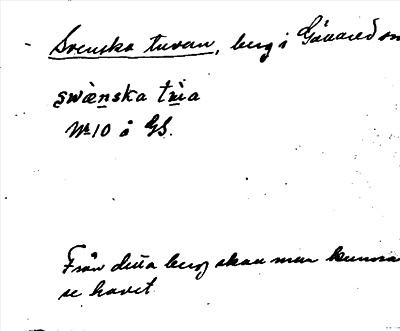 Svenska tuvan, berg i Gåvared
swänska tua
Nr 10 å GS.
Från detta berg skall man kunna
se havet